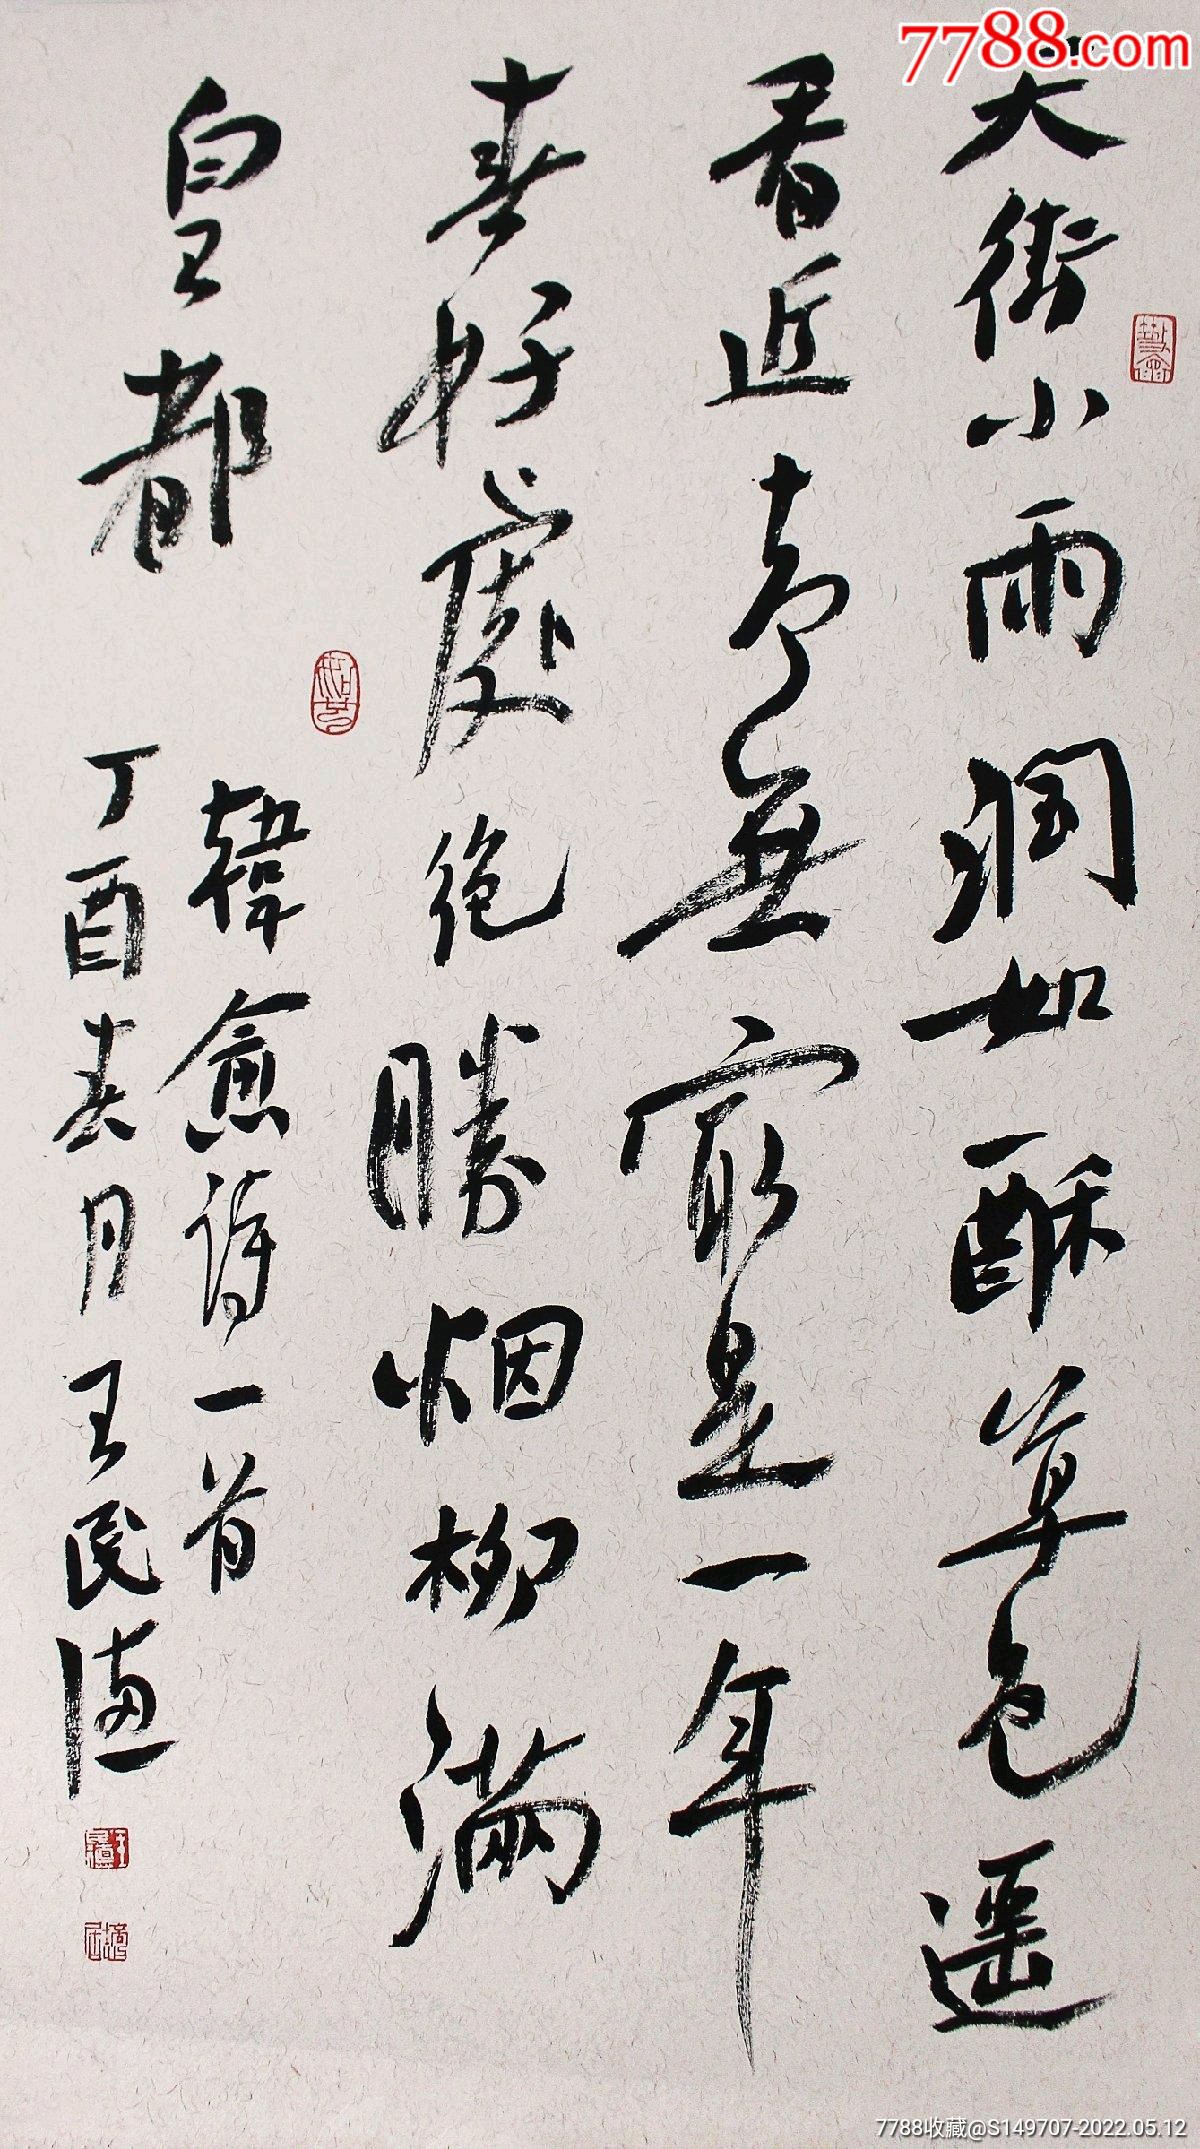 7788.com
天街小雨潤如酥草色遥
看近却無最是一年
春好處絶勝烟柳滿
皇都
韓愈詩一首
丁酉春月王民德
7788收藏@S149707-2022.05.12